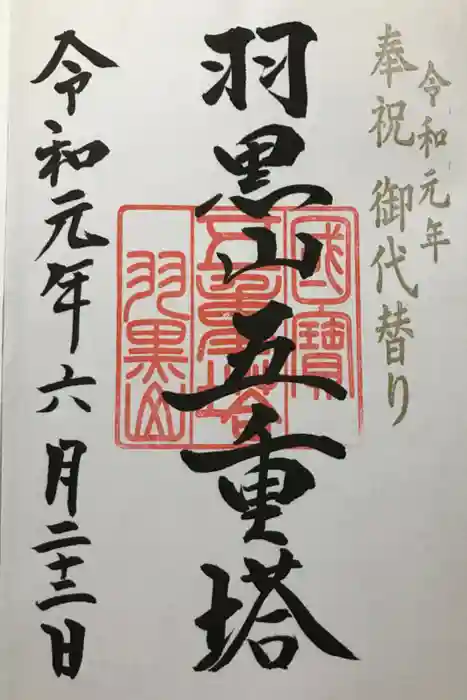 令和元年
奉祝 御代替り
羽黒山五重塔
國寶
五重塔
羽黒山
令和元年六月二十三日